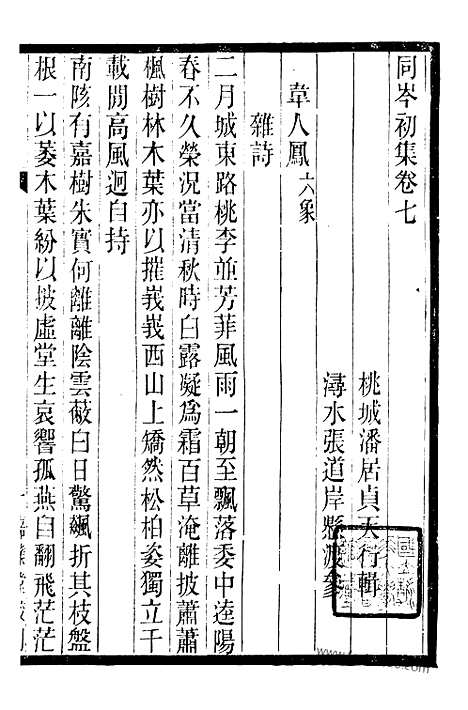 同岑初集卷七
桃城潘居貞天行輯
潯水張道岸懸渡參
韋人鳳六象
雜詩
二月城東路桃李並芳菲風雨一朝至飄落委中逵陽
春不久榮況當清秋時白露凝爲霜百草淹離披蕭蕭
楓樹林木葉亦以摧峩峩西山上矯然松柏姿獨立千
載閒高風迥自持
南陔有嘉樹朱實何離離陰雲蔽白日驚飆折其枝盤
根一以萎木葉紛以披虛堂生哀響孤燕自翻飛茫茫